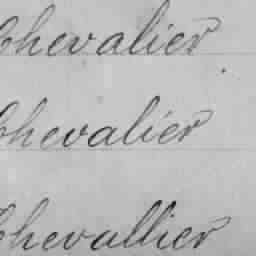 Chevalier
Chevalier
Chevallier